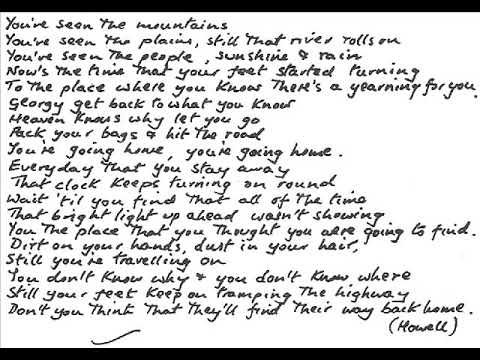 You've seen the mountains
You've seen the plains, still that river rolls on
You've seen the people, sunshine & rain
Now's the time that your feet started turning
To the place where you know there's a yearning for you.
Georgy get back to what you know
Heaven knows why let you go
Pack your bags & hit the road
You're going home, you're going home.
Everyday that you stay away
That clock keeps turning on round
Wait 'til you find that all of the time
That bright light up ahead wasn't showing.
You the place that you thought you were going to find.
Dirt on your hands, dust in your hair,
Still you're travelling on
You don't know why & you don't know where
Still your feet keep on tramping the highway
Don't you think that they'll find their way back home.
(Howell)